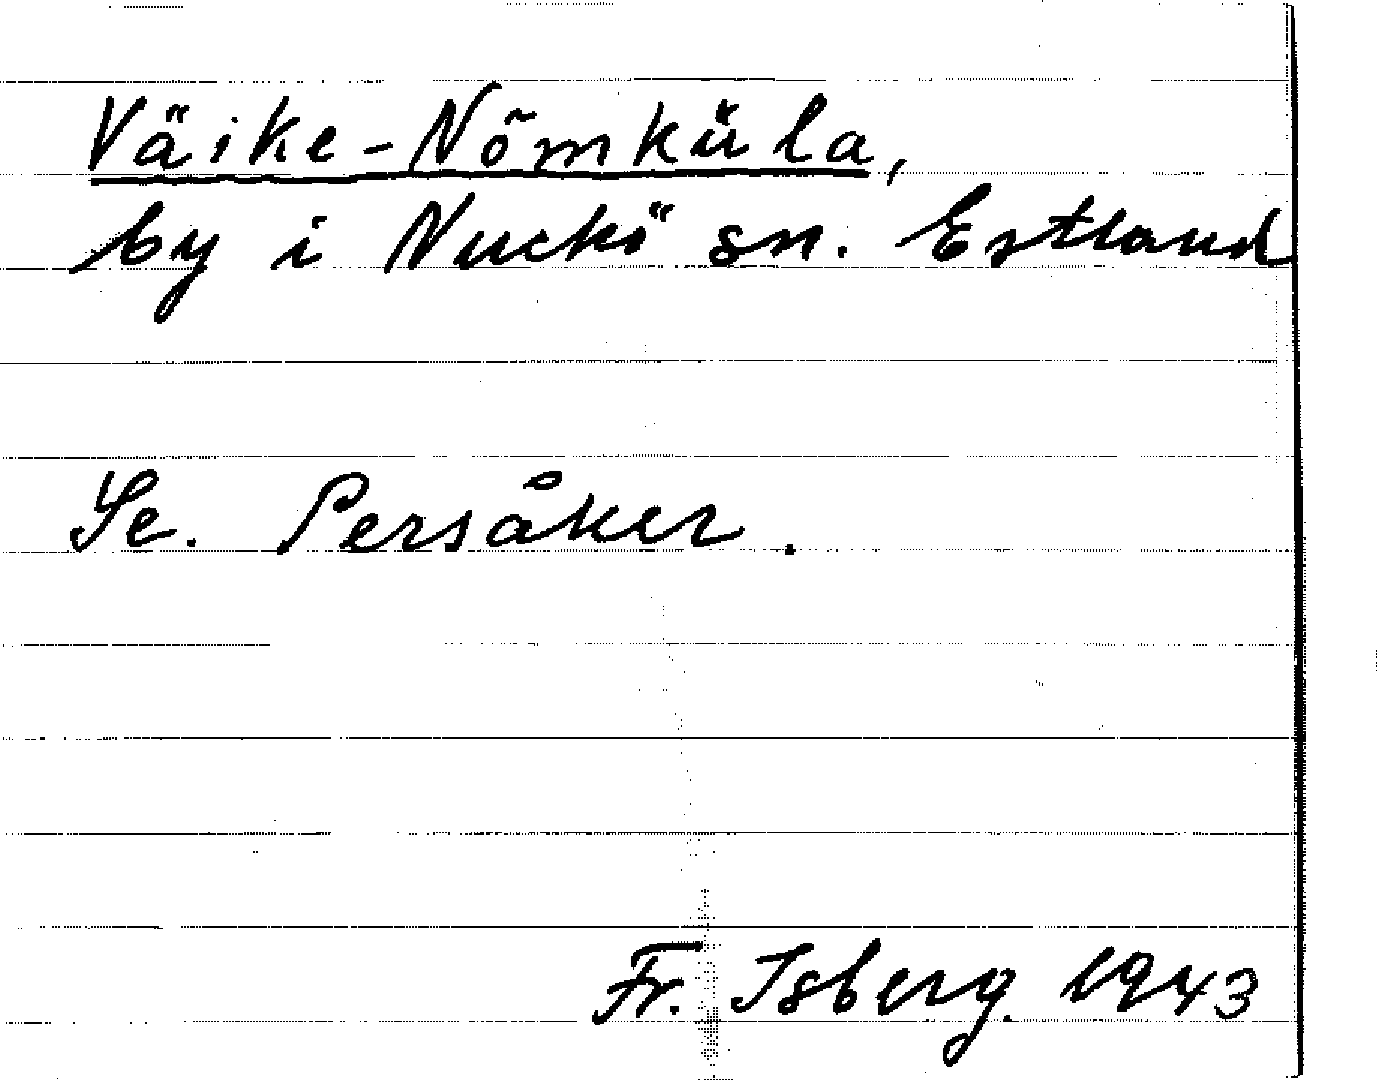 Väike-Nõmküla,
by i Nuckö sn. Estland
Se. Persåker.
Fr. Isberg. 1943